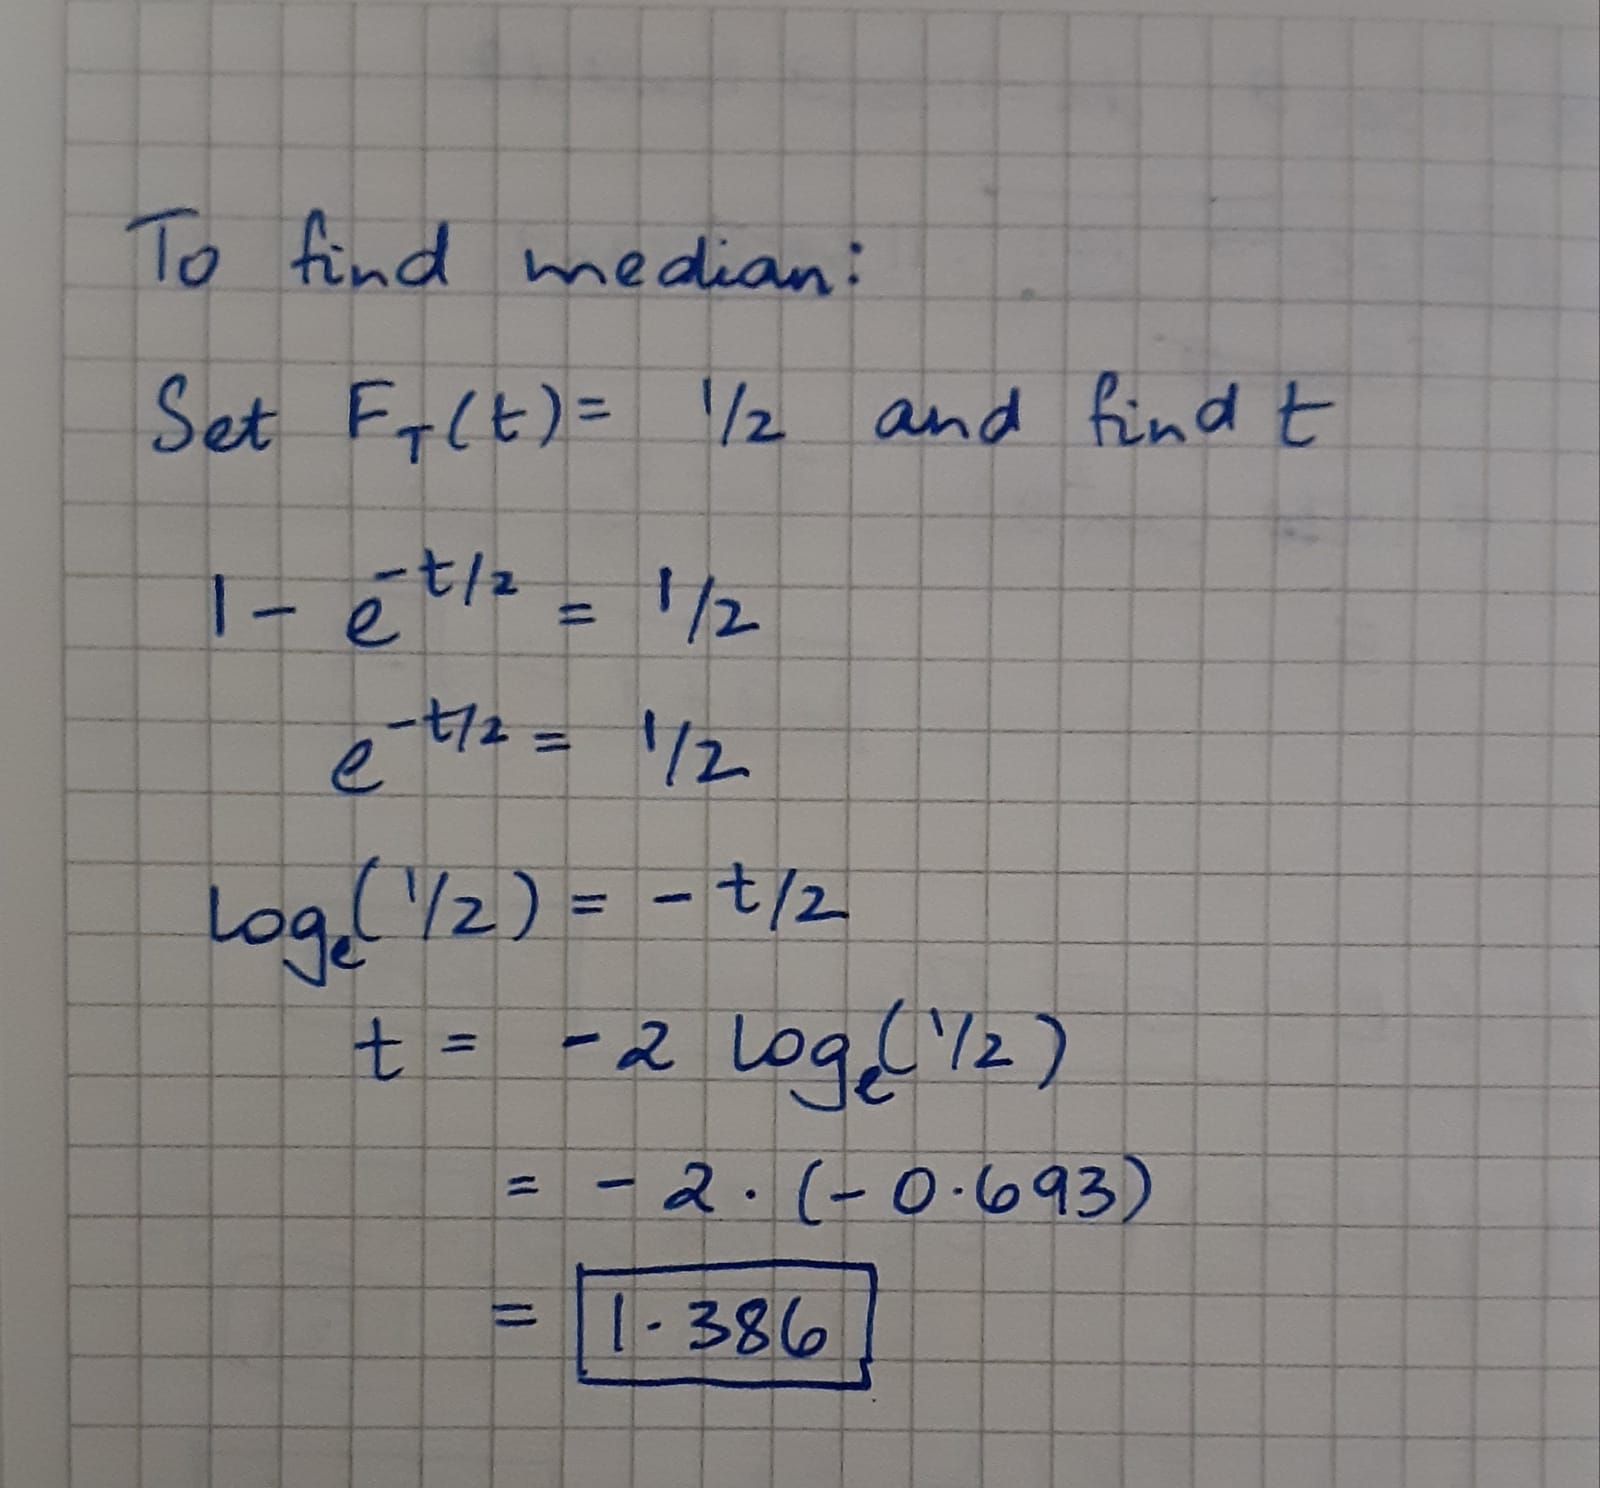 To find median:
Set F_T(t) = 1/2 and find t
1 - e^{-t/2} = 1/2
e^{-t/2} = 1/2
log_e(1/2) = - t/2
t = - 2 log_e(1/2)
= - 2 · (- 0.693)
= 1.386